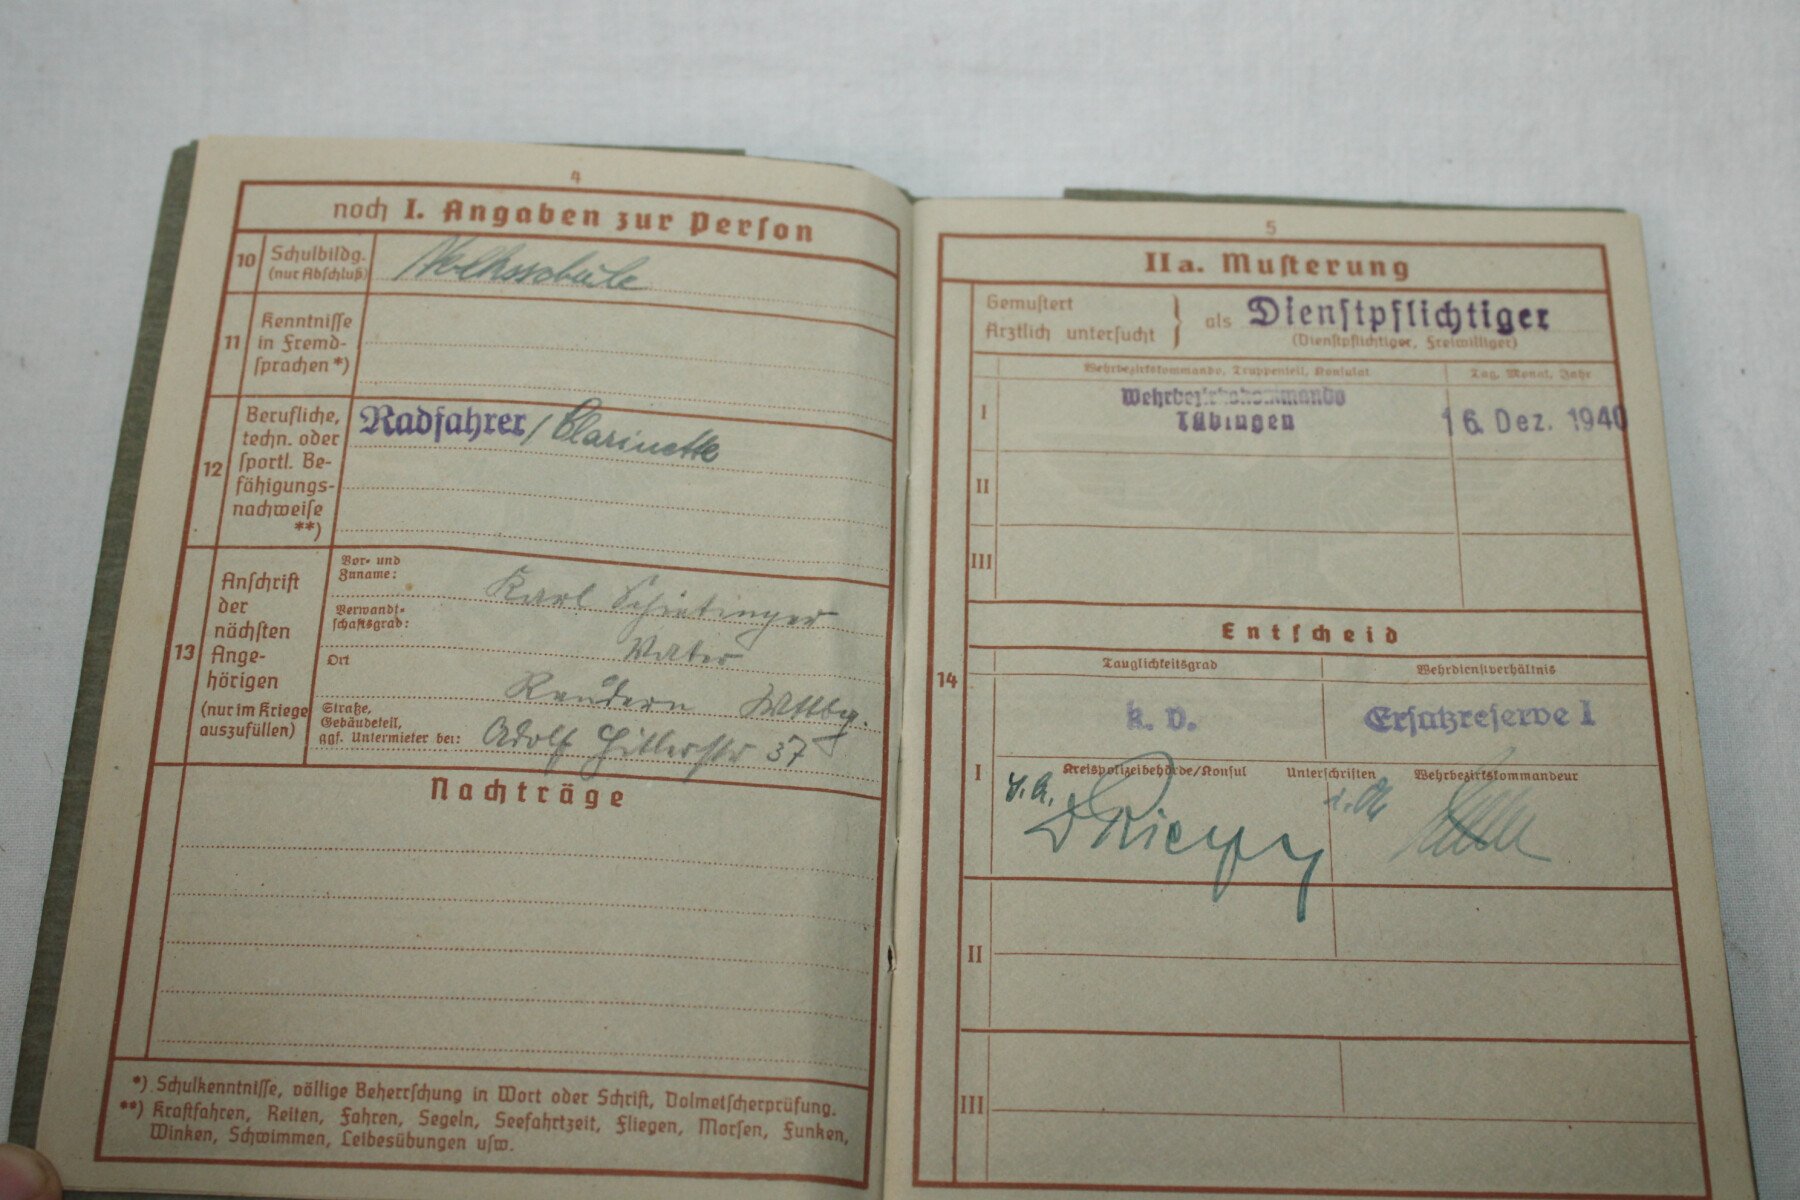 4
noch I. Angaben zur Person
10
Schulbildg.
(nur Abschluß)
Volksschule
11
Kenntnisse
in Fremd-
sprachen *)
12
Berufliche,
techn. oder
sportl. Be-
fähigungs-
nachweise
**)
Radfahrer / Clarinette
13
Anschrift
der
nächsten
Ange-
hörigen
(nur im Kriege
auszufüllen)
Vor- und
Zuname:
Karl Schietinger
Verwandt-
schaftsgrad:
Vater
Ort
Wttbg.
Straße,
Gebäudeteil,
ggf. Untermieter bei:
Adolf Hitlerstr 37
Nachträge
*) Schulkenntnisse, völlige Beherrschung in Wort oder Schrift, Dolmetscherprüfung.
**) Kraftfahren, Reiten, Fahren, Segeln, Seefahrtzeit, Fliegen, Morsen, Funken,
Winken, Schwimmen, Leibesübungen usw.
5
IIa. Musterung
Gemustert
Ärztlich untersucht } als Dienstpflichtiger
(Dienstpflichtiger, Freiwilliger)
Wehrbezirkskommando, Truppenteil, Konsulat
Tag, Monat, Jahr
I
Wehrbezirkskommando
Tübingen
16. Dez. 1940
II
III
Entscheid
14
Tauglichkeitsgrad
Wehrdienstverhältnis
k. v.
Ersatzreserve I
I
Kreispolizeibehörde/Konsul
Unterschriften
Wehrbezirkskommandeur
II
III